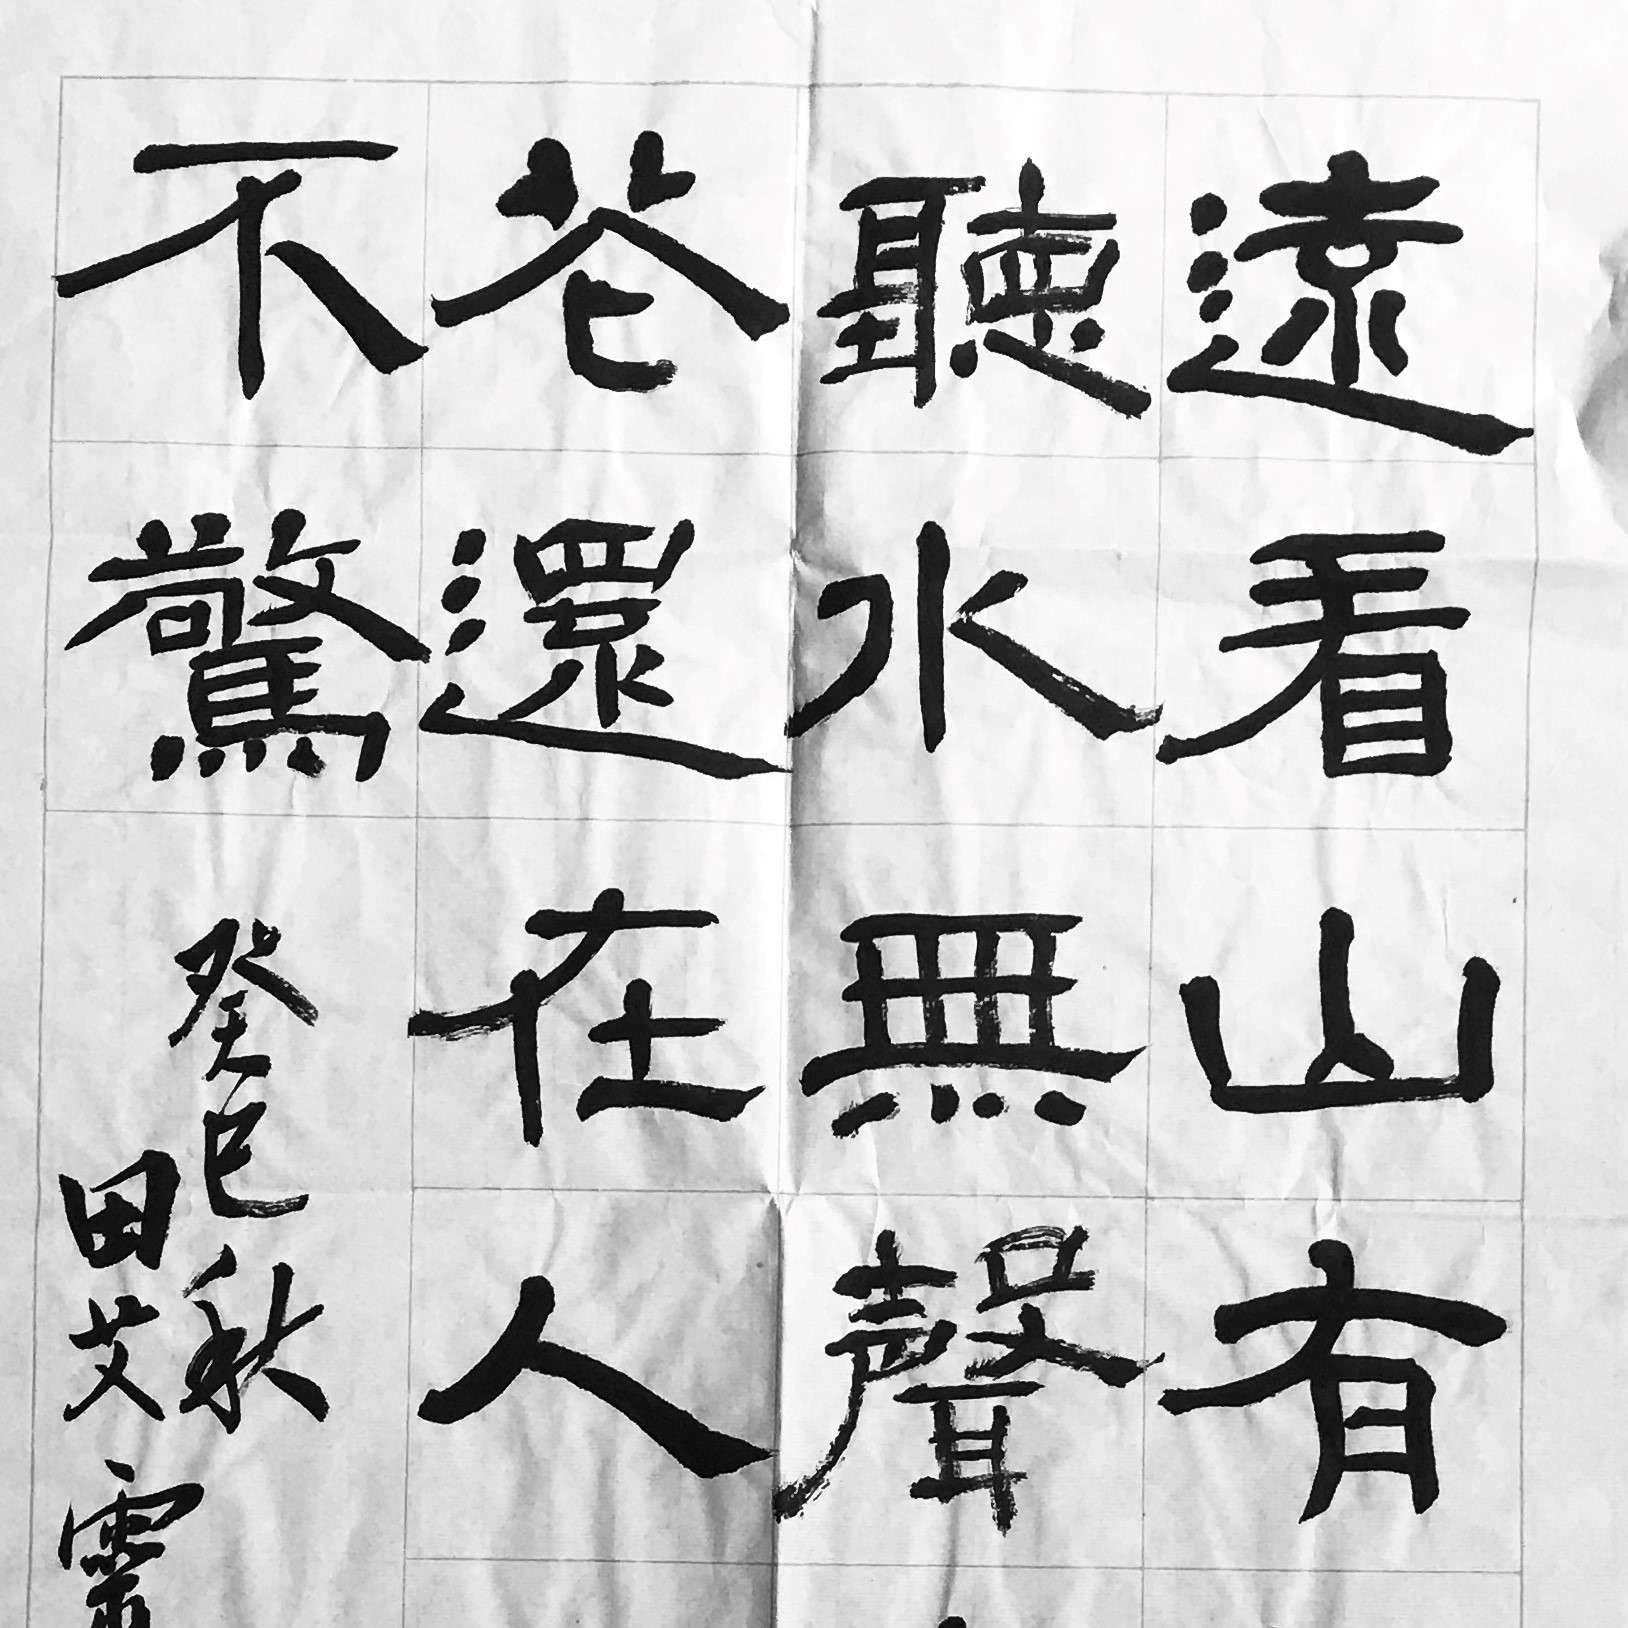 遠看山有
聽水無聲
花還在人
不驚
癸巳秋
田艾靈